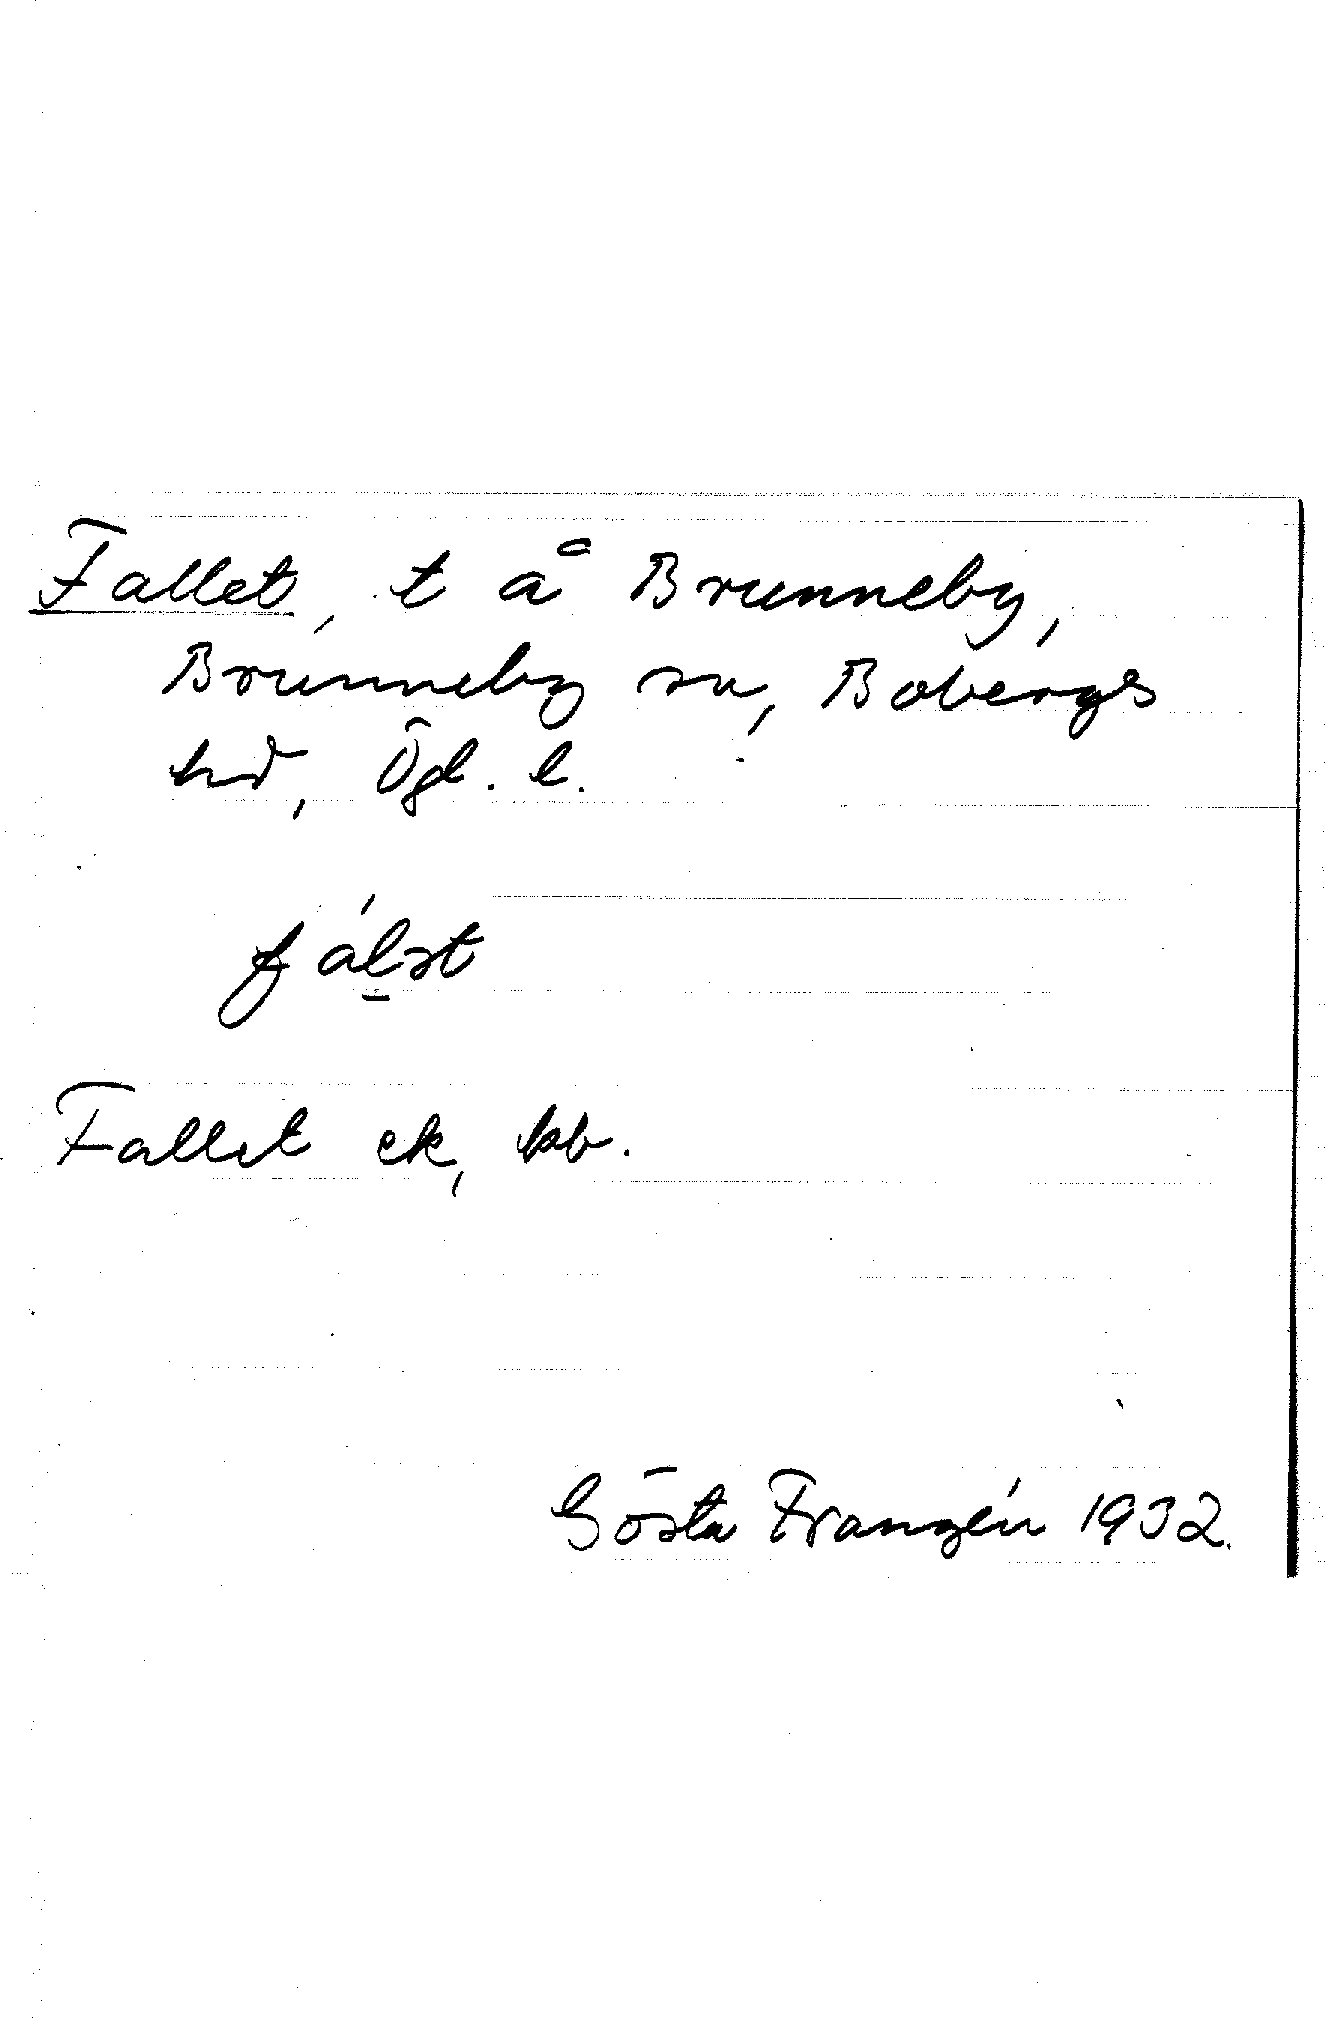 Fallet, t å Brunneby,
Brunneby sn, Bobergs
hd, Ögl. l.
fál̠st
Fallet ek, kb.
Gösta Franzén 1932.